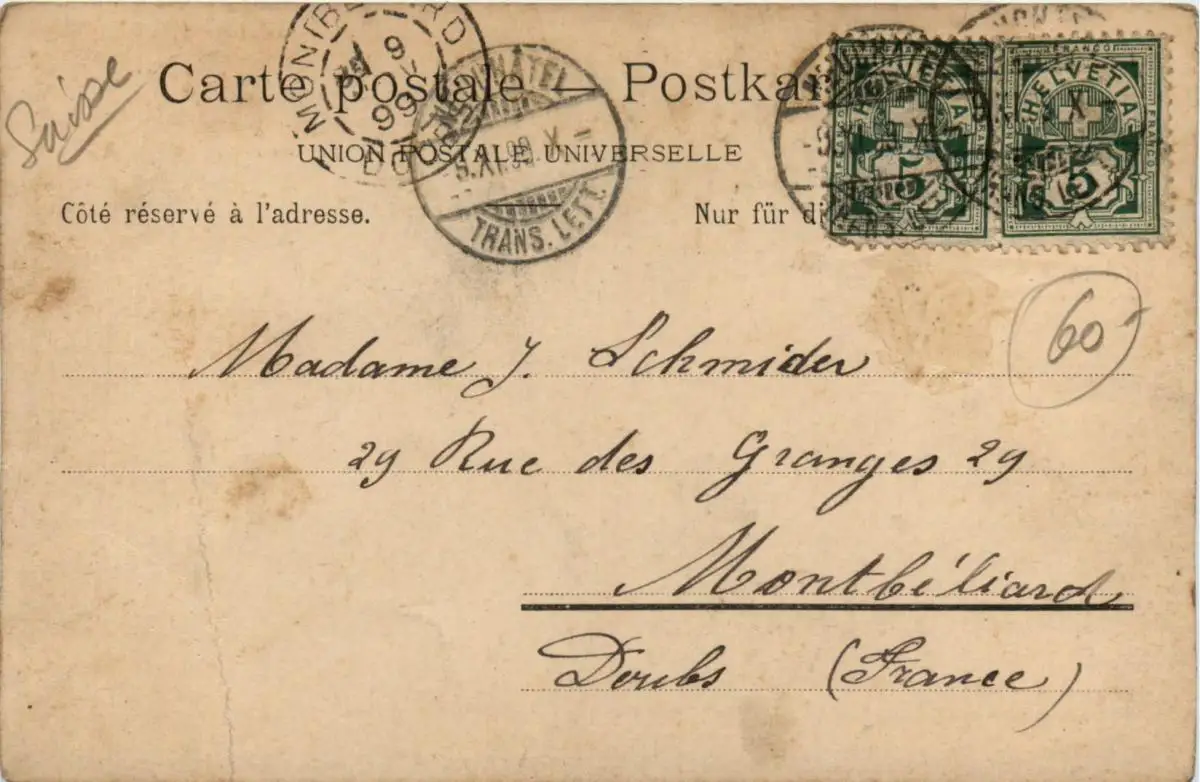 Suisse
Carte postale — Postkar
UNION POSTALE UNIVERSELLE
Côté réservé à l'adresse.
Nur für di
MONTBÉLIARD
9
99
DOUBS
NEUCHÂTEL
9.XI.99.X–
TRANS. LETT.
HELVETIA
FRANCO
5
FRANCO
HELVETIA
FRANCO
X
5
60
Madame J. Schmider
29 Rue des Granges 29
Montbéliard
Doubs (France)